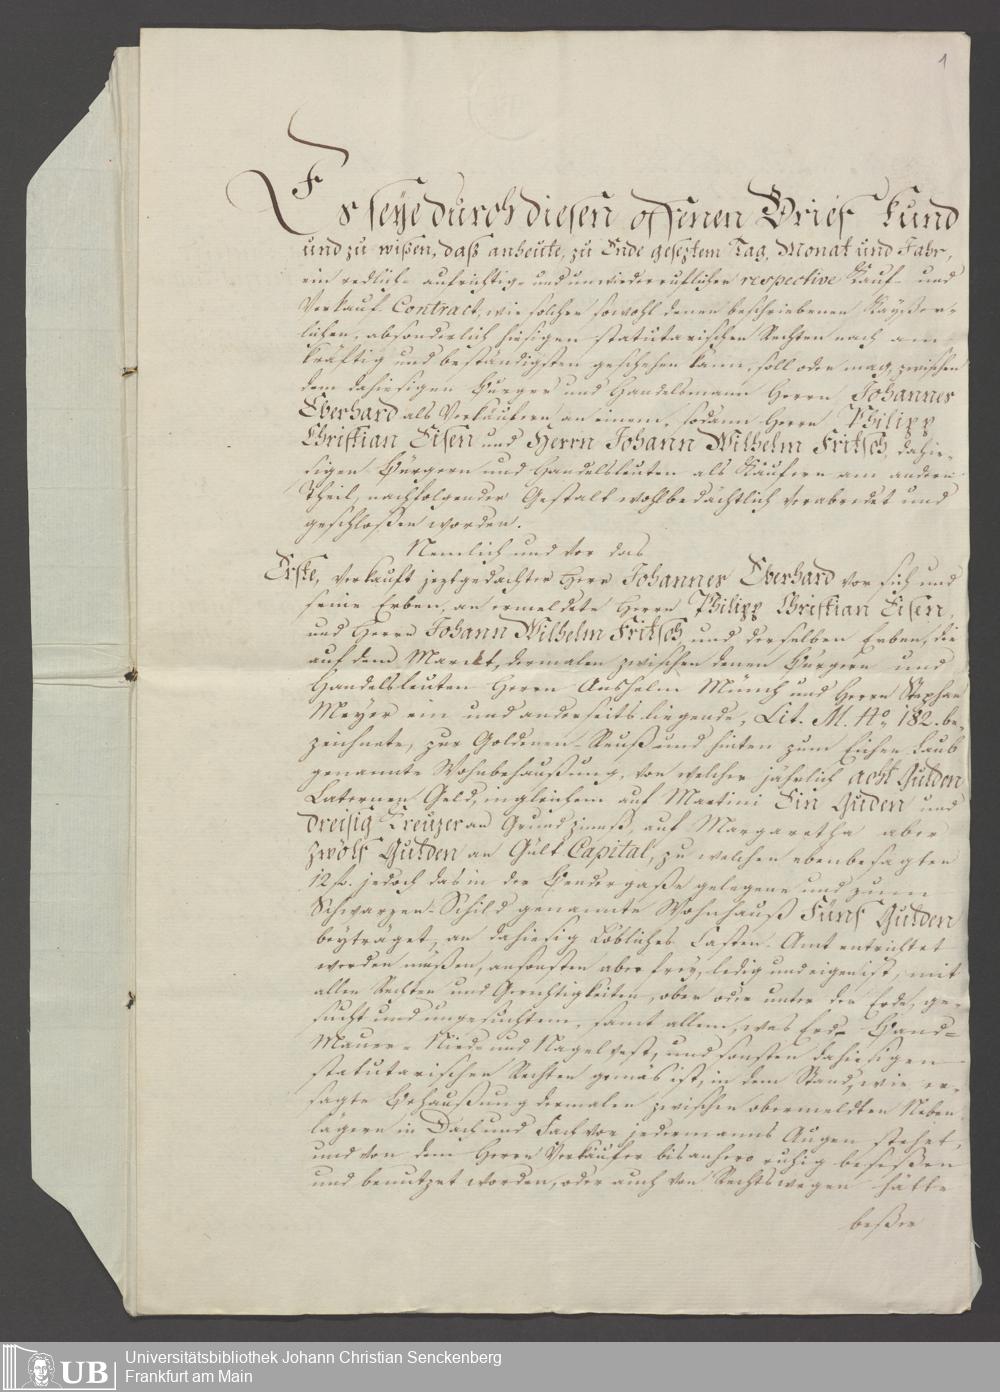 1
Es seye durch diesen offenen Brief kund
und zu wißen, daß anheute, zu Ende geseztem Tag, Monat und Jahr,
ein redlich- aufrichtig- und unwiederruflicher respective Kauf- und
Verkauf Contract, wie solcher sowohl denen beschriebenen Kayßer-
lichen, absonderlich hiesigen statutarischen Rechten nach am
kräftig und beständigsten geschehen kann, soll oder mag, zwischen
dem dahiesigen Burger und Handelsmann Herrn Johannes
Eberhard als Verkäufern an einem, sodann Herrn Philipp
Christian Eisen und Herrn Johann Wilhelm Fritsch, dahie-
sigen Burgern und Handelsleuten als Käufern am andern
Theil, nachfolgender Gestalt wohlbedächtlich verabredet und
geschloßen worden.
Nemlich und vor das
Erste, verkauft jeztgedachter Herr Johannes Eberhard vor sich und
seine Erben, an ermeldete Herrn Philipp Christian Eisen,
und Herrn Johann Wilhelm Fritsch und derselben Erben, die
auf dem Marckt, dermalen zwischen denen Burgern und
Handelsleuten Herrn Anshelm Münch und Herrn Stephan
Meyer ein und anderseits liegende, Lit. M. No. 182. be-
zeichnete, zur Goldenen-Reuß und hinten zum Eichen Laub
genannte Wohnbehaußung, von welcher jährlich acht Gulden
Laternen Geld, ingleichem auf Martini Ein Gulden und
dreisig Kreuzer an Grundzinnß, auf Margaretha aber
zwölf Gulden an Gült Capital, zu welchen ebenbesagten
12 fl. jedoch das in der Bendergaße gelegene und zum
Schwarzen-Schild genannte Wohnhauß Fünf Gulden
beyträget, an dahiesig Löbliches Casten-Amt entrichtet
werden müßen, ansonsten aber frey, ledig und eigen ist, mit
allen Rechten und Gerechtigkeiten, ober oder unter der Erde, ge-
sucht und ungesuchtem, samt allem, was Erd- Band-
Mauer- Nied- und Nagelfest, und sonsten dahiesigen
statutarischen Rechten gemäs ist, in dem Stand, wie er-
sagte Behaußung dermalen zwischen obermeldten Neben-
lägern in Dach und Fach vor jedermanns Augen stehet,
und von dem Herrn Verkäufer bis anhero ruhig beseßen
und benutzet worden, oder auch von Rechtswegen hätte
beßer
UB
Universitätsbibliothek Johann Christian Senckenberg
Frankfurt am Main